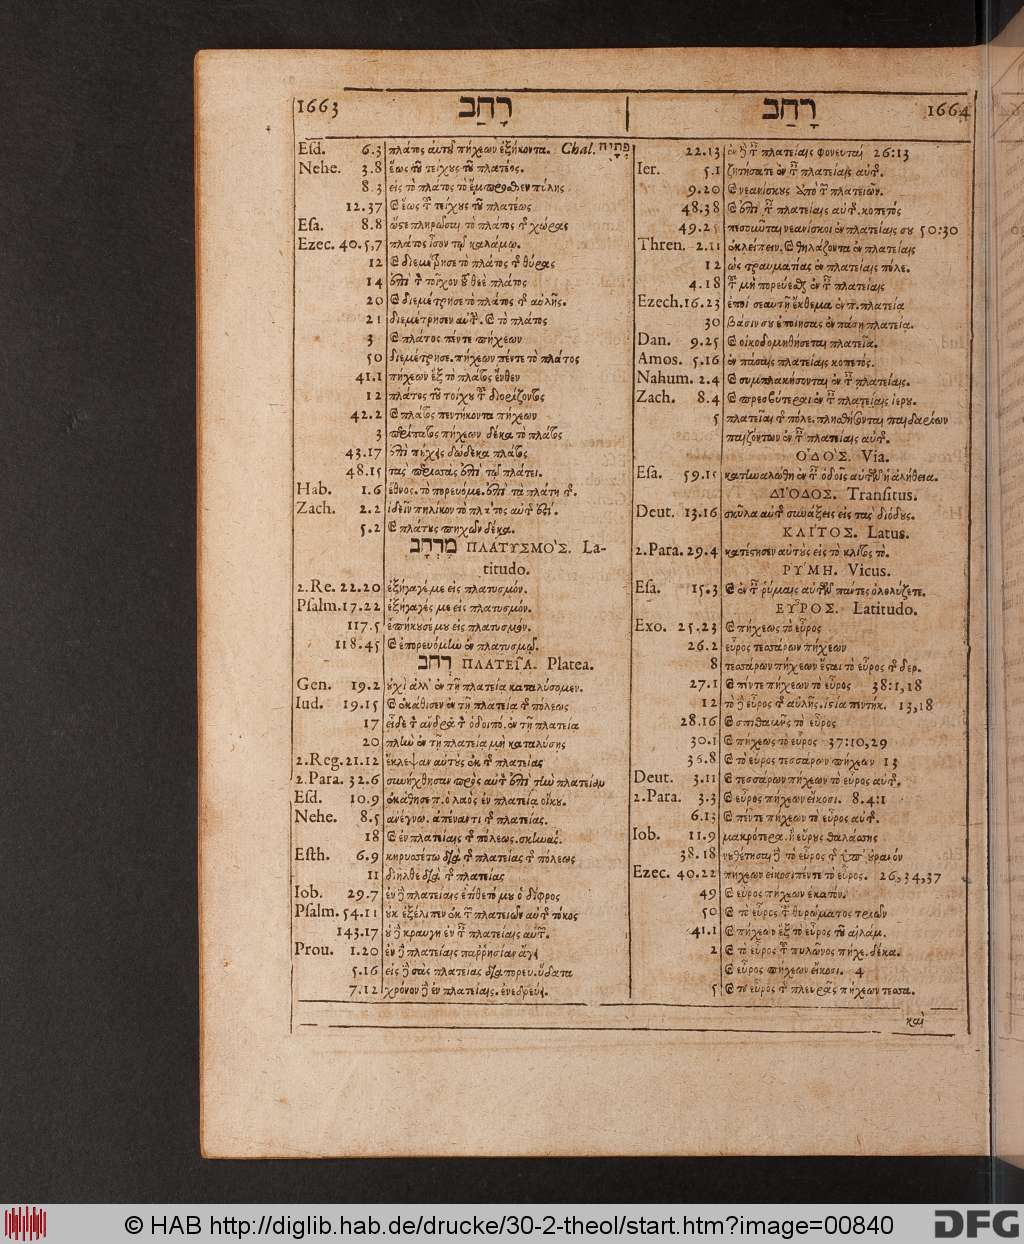 1663 רָחַב
Esd. 6.3 πλάτος αυτου πήχεων ἑξήκοντα. Chal. פְּתָיֵהּ
Nehe. 3.8 ἕως τοῦ τείχους τοῦ πλατέος.
8.3 εἰς τὸ πλάτος τὸ ἔμπροσθεν πύλης
12.37 καὶ ἕως τοῦ τείχους τοῦ πλατέως
Esa. 8.8 ὥστε πληρῶσαι τὸ πλάτος τῆς χώρας
Ezec. 40.5,7 πλάτος ἴσον τῷ καλάμῳ.
12 καὶ διεμέτρησε τὸ πλάτος τῆς θύρας
14 πλάτος
20 καὶ διεμέτρησε τὸ πλάτος τῆς αὐλῆς.
21 διεμέτρησεν αὐτ. καὶ τὸ πλάτος
3 καὶ πλάτος πέντε πήχεων
50 διεμέτρησε. πήχεων πέντε τὸ πλάτος
41.1 πήχεων ἓξ τὸ πλάτος ἔνθεν
12 πλάτος τοῦ τοίχου τοῦ διορίζοντος
42.2 καὶ πλάτος πεντήκοντα πήχεων
3 περίπατος πήχεων δέκα τὸ πλάτος
43.17 ἐπὶ πήχεις δώδεκα πλάτος
48.15 τὰς περισσὰς ἐπὶ τῷ πλάτει.
Hab. 1.6 ἔθνος. τὸ πορευόμε. ἐπὶ τὰ πλάτη τῆς.
Zach. 2.2 ἰδεῖν πηλίκον τὸ πλάτος αὐτῆς ἐστί.
5.2 καὶ πλάτους πηχῶν δέκα.
מֶרְחָב ΠΛΑΤΥΣΜΟ'Σ. La-
titudo.
2.Re. 22.20 ἐξήγαγέ με εἰς πλατυσμόν.
Psalm. 17.22 ἐξήγαγές με εἰς πλατυσμόν.
117.5 ἐπήκουσέ μου εἰς πλατυσμόν.
118.45 καὶ ἐπορευόμην ἐν πλατυσμῷ.
רחב ΠΛΑΤΕΓΑ. Platea.
Gen. 19.2 οὐχὶ ἀλλ' ἐν τῇ πλατεία καταλύσομεν.
Iud. 19.15 καὶ ἐκάθισεν ἐν τῇ πλατεία τῆς πόλεως
17 εἶδε τὸν ἄνδρα τὸν ὁδοιπό. ἐν τῇ πλατεία
20 πλὴν ἐν τῇ πλατεία μὴ καταλύσης
2.Reg. 21.12 ἔκλεψαν αὐτοὺς ἐκ τῆς πλατείας
2.Para. 32.6 συνήχθησαν πρὸς αὐτὸν ἐπὶ τὴν πλατεῖαν
Esd. 10.9 ἐκάθησε π. ὁ λαὸς ἐν πλατεία οἴκου.
Nehe. 8.5 ἀνέγνω. ἀπέναντι τῆς πλατείας.
18 καὶ ἐν πλατείαις τῆς πόλεως. σκηνάς.
Esth. 6.9 κηρυσσέτω διὰ τῆς πλατείας τῆς πόλεως
11 διῆλθε διὰ τῆς πλατείας
Iob. 29.7 ἐν δὲ πλατείαις ἐτίθετό μου ὁ δίφρος
Psalm. 54.11 οὐκ ἐξέλιπεν ἐκ τῶν πλατειῶν αὐτῆς τόκος
143.17 οὐδὲ κραυγὴ ἐν ταῖς πλατείαις αὐτῶν.
Prou. 1.20 ἐν δὲ πλατείαις παῤῥησίαν ἄγει
5.16 εἰς δὲ σὰς πλατείας διαπορευ. ὕδατα
7.12 χρόνον δὲ ἐν πλατείαις. ἐνεδρεύει.
רָחַב 1664
22.13 ἐν δὲ ταῖς πλατείαις φονευταί 26:13
Ier. 5.1 ζητήσατε ἐν ταῖς πλατείαις αὐτῆς.
9.20 καὶ νεανίσκους ἀπὸ τῶν πλατειῶν.
48.38 καὶ ἐπὶ ταῖς πλατείαις αὐτῆς. κοπετός
49.25 πεσοῦνται νεανίσκοι ἐν πλατείαις σου 50:30
Thren. 2.11 ἐκλείπειν. καὶ θηλάζοντα ἐν πλατείαις
12 ὡς τραυματίας ἐν πλατείαις πόλε.
4.18 τοῦ μὴ πορεύεσθαι ἐν ταῖς πλατείαις
Ezech. 16.23 ἐποί σεαυτῇ ἔκθεμα ἐν π. πλατεία
30 βάσιν σου ἐποίησας ἐν πάση πλατεία.
Dan. 9.25 καὶ οἰκοδομηθήσεται πλατεῖα.
Amos. 5.16 ἐν πάσαις πλατείαις κοπετός.
Nahum. 2.4 καὶ συμπλακήσονται ἐν ταῖς πλατείαις.
Zach. 8.4 καὶ πρεσβύτεραι ἐν ταῖς πλατείαις ἱερου.
5 πλατεῖαι τῆς πόλε. πλησθήσονται παιδαρίων
παιζόντων ἐν ταῖς πλατείαις αὐτῆς.
Ο'ΔΟ'Σ. Via.
Esa. 59.15 κατηναλώθη ἐν ταῖς ὁδοῖς αὐτῶν ἡ ἀλήθεια.
ΔΙ'ΟΔΟΣ. Transitus.
Deut. 13.16 σκῦλα αὐτῆς συνάξεις εἰς τὰς διόδους.
ΚΛΙΤΟΣ. Latus.
2.Para. 29.4 κατέστησεν αὐτοὺς εἰς τὸ κλίτος τὸ.
ΡΥ'ΜΗ. Vicus.
Esa. 15.3 καὶ ἐν ταῖς ῥύμαις αὐτῶν πάντες ὀλολύζετε.
ΕΥ͂ΡΟΣ. Latitudo.
Exo. 25.23 καὶ πήχεως τὸ εὖρος
26.2 εὖρος τεσσάρων πήχεων
8 τεσσάρων πήχεων ἔσται τὸ εὖρος τῆς δερ.
27.1 καὶ πέντε πήχεων τὸ εὖρος 38:1,18
12 τὸ δὲ εὖρος τῆς αὐλῆς. ἱστία πεντήκ. 13,18
28.16 καὶ σπιθαμῆς τὸ εὖρος
30.1 καὶ πήχεως τὸ εὖρος 37:10,29
36.8 καὶ τὸ εὖρος τεσσάρων πήχεων 13
Deut. 3.11 καὶ τεσσάρων πήχεων τὸ εὖρος αὐτῆς.
2.Para. 3.3 καὶ εὖρος πήχεων εἴκοσι. 8.4:1
6.13 καὶ πέντε πήχεων τὸ εὖρος αὐτῆς.
Iob. 11.9 μακρότερα. ἢ εὔρους θαλάσσης
38.18 νουθέτησαι δὲ τὸ εὖρος τῆς ὑπ' οὐρανόν
Ezec. 40.22 πήχεων εἰκοσιπέντε τὸ εὖρος. 26,34,37
49 καὶ εὖρος πήχεων ἑκατόν.
50 καὶ τὸ εὖρος τοῦ θυρώματος τριῶν
41.1 καὶ πήχεων ἓξ τὸ εὖρος τοῦ αἰλάμ.
2 καὶ τὸ εὖρος τοῦ πυλῶνος πήχε. δέκα.
καὶ εὖρος πήχεων εἴκοσι. 4
5 καὶ τὸ εὖρος τῆς πλευρᾶς πήχεων τεσσα.
καὶ
© HAB http://diglib.hab.de/drucke/30-2-theol/start.htm?image=00840
DFG